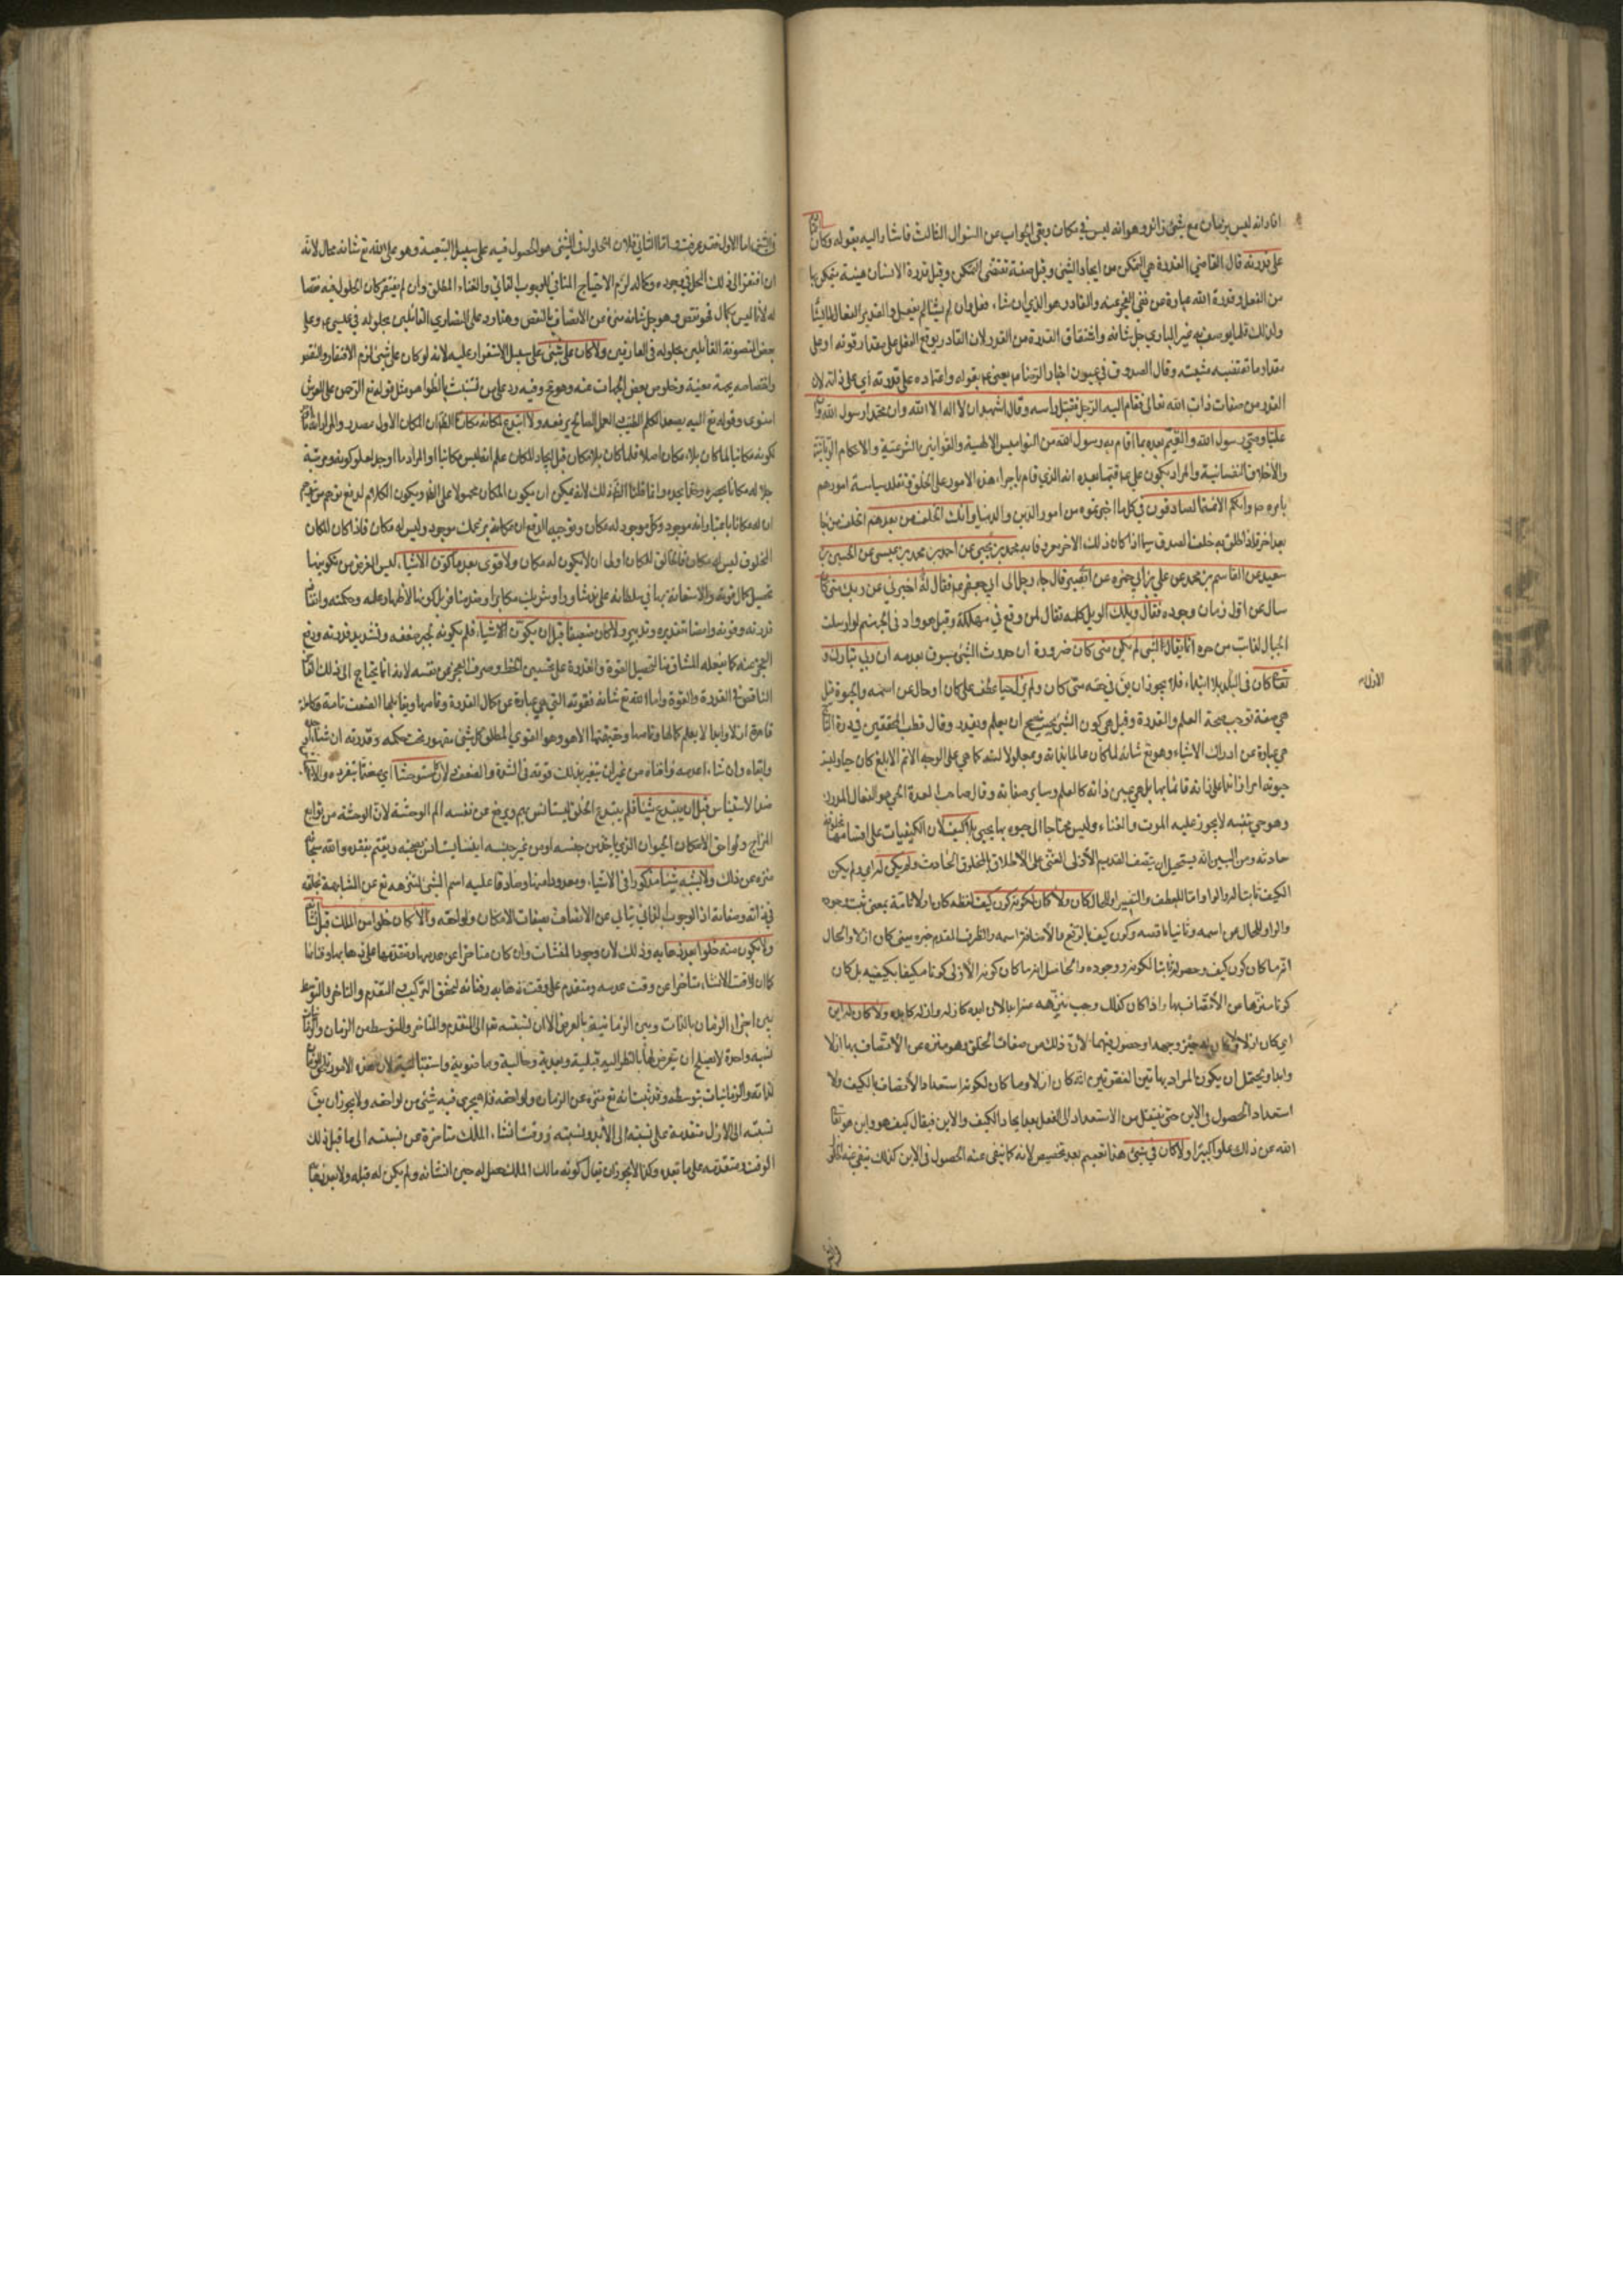 افاد انه ليس بزمان مع شيء زائد وهو انه ليس في مكان وبقى الجواب عن السؤال الثالث فاشار اليه بقوله وكان
على قدرته قال القاضي القدرة هي التمكن من ايجاد الشيء وقيل صفة تقتضى التمكن وقيل قدرة الانسان هيئة يتمكن بها
من الفعل وقدرة الله عبارة عن نفي العجز عنه والقادر هو الذي ان شاء فعل وان لم يشأ لم يفعل والقدير الفعال لما يشاء
ولذلك قلما يوصف به غير الباري جل شانه واشتقاق القدرة من القدر لان القادر يوقع الفعل على مقدار قوته او على
مقدار ما تقتضيه مشيته وقال الصدوق في عيون اخبار الرضا يعنى بقوله واعتماده على قدرته أي على ذاته لان
القدرة من صفات ذات الله تعالى فقام اليه الرجل فقبل راسه وقال اشهد ان لا اله الا الله وان محمدا رسول الله وان
عليا وصي رسول الله والقيم بعده بما اقام به رسول الله من النواميس الالهية والقوانين الشرعية والاحكام الربانية
والاخلاق النفسانية والمراد بكون على قيما بعده انه الذي قام باجراء هذه الامور على الخلق وتقلد سياسة امورهم
بامره وانكم الائمة الصادقون في كل ما اخبرتموه من امور الدين والدنيا وانك الخلف من بعدهم الخلف من جاء
بعد اخر فاذا اطلق به خلف الصدق سيما اذا كان ذلك الاخر معروفا به محمد بن يحيى عن احمد بن محمد بن عيسى عن الحسين بن
سعيد عن القاسم بن محمد عن علي بن أبي حمزة عن ابي بصير قال جاء رجل الى ابي جعفر فقال له اخبرني عن ربك متى كان
سال عن اول زمان وجوده فقال ويلك الويل كلمة تقال لمن وقع في مهلكة وقيل هو واد في جهنم لو ارسلت
الجبال لذابت من حره انما يقال لشيء لم يكن متى كان ضرورة ان حدوث الشيء مسبوق بعدمه ان ربي تبارك و
تعالى كان في الابد بلا ابتداء فلا يجوز ان يق في حقه متى كان ولم يزل حيا عطف على كان او حال عن اسمه والحيوة قيل
هي صفة توجب صحة العلم والقدرة وقيل هي كون الشيء بحيث يصح ان يعلم ويقدر وقال قطب المحققين في درة التاج
هي عبارة عن ادراك الاشياء وهو تع شانه لما كان عالما بذاته ومعلولاته كما هي على الوجه الاتم الابلغ كان حيا وليست
حيوته امرا زائدا على ذاته قائما بها بل هي عين ذاته كالعلم وساير صفاته وقال صاحب العدة الحي هو الفعال المدرك
وهو حي بنفسه لا يجوز عليه الموت والفناء وليس محتاجا الى حيوة بها يحيى بلا كيف لان الكيفيات على اقسامها مخلوقة
حادثة ومن البين انه يستحيل ان يتصف القديم الأزلى الغنى على الاطلاق بالمخلوق الحادث ولم يكن له اي ولم يكن
الكيف ثابتا له والواو اما للعطف والتفسير او للحال كان ولا كان لكونه كون كيف لفظة كان اولا تامة بمعنى ثبت وجوده
والواو للحال عن اسمه وثانيا ناقصة وكون كيف بالرفع والاضافة اسمه والظرف المقدم خبره يعنى كان ازلا والحال
انه ما كان كون كيف وحصوله ثابتا لكونه ووجوده والحاصل انه ما كان كونه الأزلى كونا مكيفا بكيفية بل كان
كونا منزها عن الأتصاف بها واذا كان كذلك وجب تنزهه عنها بالان ابده كازله وازله كابده ولا كان له اين
اي كان ازلا ولا كان له حيز وجهة وحصول فيهما لان ذلك من صفات الخلق وهو منزه عن الاتصاف بها ازلا
وابدا ويحتمل ان يكون المراد بهاتين الفقرتين انه كان ازلا وما كان لكونه استعداد الأتصاف بالكيف ولا
استعداد الحصول في الاين حتى ينتقل من الاستعداد الى الفعل بعد ايجاد الكيف والاين فيقال كيف هو واين هو تعالى
الله عن ذلك علوا كبيرا ولا كان في شيء هذا تعميم بعد تخصيص لانه كما ينفى عنه الحصول في الاين كذلك ينفى عنه الحلول
الاول
في الشيء اما الاول فقد عرفت واما الثاني فلان الحلول في الشيء هو الحصول فيه على سبيل التبعية وهو على الله تع شانه محال لانه
ان افتقر الى ذلك المحل في وجوده وكماله لزم الاحتياج المنافي للوجوب الذاتي والغناء المطلق وان لم يفتقر كان الحلول فيه نقصا
له لأن ما ليس بكمال فهو نقص وهو جل شانه منزه عن الاتصاف بالنقص وهذا رد على النصارى القائلين بحلوله في عيسى وعلى
بعض المتصوفة القائلين بحلوله في العارفين ولا كان على شيء على سبيل الاستقرار عليه لانه لو كان على شيء لزم الافتقار والنقص
واختصاصه بجهة معينة وخلوص بعض الجهات عنه وهو تع وفيه رد على من تشبث بالظواهر مثل قوله تع الرحمن على العرش
استوى وقوله تع اليه يصعد الكلم الطيب والعمل الصالح يرفعه ولا ابتدع لمكانه مكانا الظ ان المكان الاول مصدر والمراد
كونه مكانيا لما كان بلا مكان اصلا فلما كان بلا مكان قبل ايجاد المكان علم انه ليس مكانيا او المراد ما اوجد لعلو كونه ومرتبة
جلاله مكانا يحيزه وحدا يحده وانما قلنا الظ ذلك لانه يمكن ان يكون المكان محمولا على الظ ويكون الكلام لدفع توهم من توهم
ان له مكانا باعتبار انه موجود وكل موجود له مكان وتوجيه الدفع ان مكانه موجود وليس له مكان فاذا كان المكان
المخلوق ليس له مكان فالخالق للمكان اولى ان لا يكون له مكان ولا قوى بعد ما كون الاشياء ليس الغرض من تكوينها
تحصيل كمال قوته والاستعانة بها في سلطانه على ند مشاور او شريك مكابر او ضد منافر بل كونها لأظهار علمه وحكمته وانفاذ
قدرته وقوته وامضاء تقديره وتدبيره ولا كان ضعيفا قبل ان يكون الاشياء فلم يكونه لجبر ضعفه وتشديد قدرته ورفع
العجز عنه كما يفعله المشاق منا لتحصيل القوة والقدرة على تحسين الحظ وصرف العجز عن نفسه لانه انما يحتاج الى ذلك
الناقص في القدرة والقوة واما الله تع شانه فقوته التي هي عبارة عن كمال القدرة وتمامها ويقابلها الضعف تامة كاملة
قاهرة ازلا وابدا لا يعلم كمالها وتمامها وحقيقتها الا هو وهو القوي المطلق كل شيء مقهور تحت حكمه وقدرته ان شاء
وابقاه وان شاء اعدمه وافناه من غير ان يتغير بذلك قوته في الشدة والضعف ولا كان مستوحشا اي مغتما بتفرده
ضد الاستيناس قبل ان يبتدع شيئا فلم يبتدع الخلق ليستانس بهم ويدفع عن نفسه الم الوحشة لان الوحشة من توابع
المزاج ولواحق الامكان الحيوان الذي ياخذ من جنسه او من غير جنسه انيسا يستانس بصحبته ويغتم بفقده والله سبحانه
منزه عن ذلك ولا يشبه شيئا مذكورا في الاشياء ومعدودا منها وصادقا عليه اسم الشيء لتنزهه تع عن الشابهة بخلقه
في ذاته وصفاته اذ الوجوب الذاتي يتابى عن الاتصاف بصفات الامكان ولواحقه ولا كان خلوا من الملك قبل انشائه
ولا يكون منه خلوا بعد ذهابه وذلك لان وجود المنشات وان كان متاخرا عن عدمها ومتقدما على ذهابها وفنائها
كما ان لوقت الانشاء تاخرا عن وقت عدمه ومتقدم على وقت ذهابه وفنائه لتحقق الترتيب في التقدم والتاخر والتوسط
بين اجزاء الزمان بالذات وبين الزمانيات بالعرض الا ان لنسبته تع الى المتقدم والمتاخر والمتوسط من الزمان والزمانيات
نسبة واحدة لا يصلح ان تعرض لها بالنظر اليه قبلية وبعدية وحالية وماضوية واستقبالية لان هذه الامور
لذاته والزمانيات بتوسطه وقد ثبت انه تع منزه عن الزمان ولواحقه فلا يجري فيه شيء من لواحقه ولا يجوز ان يق
نسبته الى الازل متقدمة على نسبته الى الأبد ونسبته وقت انشاء الملك متاخرة عن نسبته الى ما قبل ذلك
الوقت ومتقدمة على ما بعده وكذا لا يجوز ان يقال كونه مالك الملك حصل له حين انشائه ولم يكن له قبله ولا بعد ذهابه